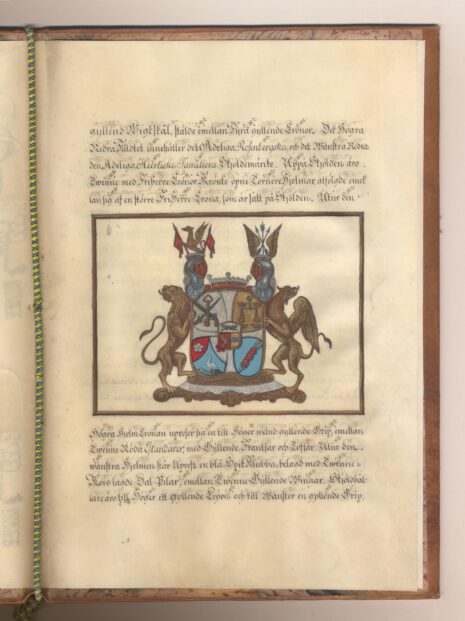 gyllend Wigtskål, stälde emellan Fyra gyllende Cronor. Det Högra
Nedra Fältet innehåller det Adeliga Rosenbergska, och det Wänstra Nedra
den Adeliga Familiens Sköldemärke. Uppå Skölden äro
Twenne med Friherre Cronor Krönte öpne Torniere Hjelmar, åtfölgde
af en större Friherre Crona, som är satt på Skölden. Utur den
Högra Hjelm Cronan upreser sig en till Höger wänd gyllende Grip, emellan
Twenne Röda Standarer, med Gyllende Frantsar och Tofsar. Utur den
wänstra Hjelmen står Uprest en blå Spik Klubba, belagd med Twenne i
Kors lagde Dal-Pilar, emellan Twenne Gyllende Wingar. Sköldhål-
lare äro till Höger ett gyllende Lejon och till Wänster en gyllende Grip,